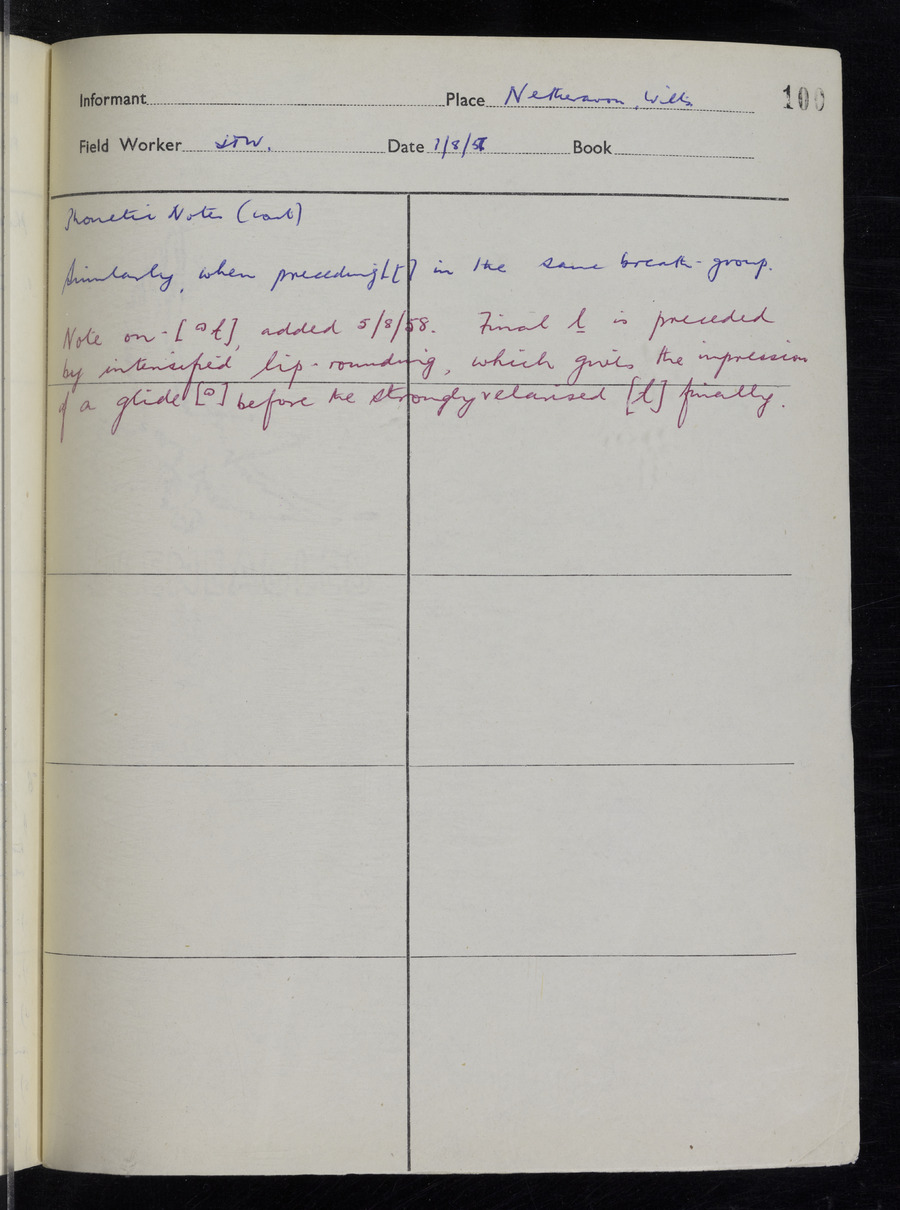 Informant Place Netheravon, Wilts 100
Field Worker JTW. Date 7/8/57 Book
Phonetic Notes (cont)
Similarly, when preceding [ɫ] in the same breath-group.
Note on - [ᵓɫ], added 5/8/58. Final l is preceded
by intensified lip-rounding, which gives the impression
of a glide [ᵓ] before the strongly velarised [ɫ] finally.